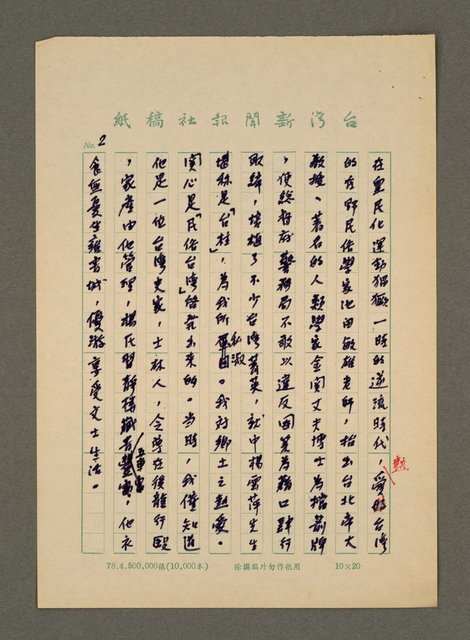 台灣新聞報社稿紙
No. 2
在皇民化運動猖獗一時的逆流時代，熱愛的台灣
的在野民俗學家池田敏雄老師，抬出台北帝大
教授、著名的人類學家金關丈夫博士為擋箭牌
，使總督府警務局不敢以違反國策為藉口肆行
取締，培植了不少台灣菁英，就中楊雲萍先生
堪稱是「台柱」，為我所私淑。我對鄉土之熱愛。
關心是「民俗台灣」啓蒙出來的。當時，我僅知道
他是一位台灣史家，士林人，令尊在後龍行醫
，家產由他管理，楊氏習靜樓藏書豐富，他衣
食無憂坐擁書城，優游享受文士生活。
78.4.500,000張(10,000本)
除撰稿外勿作他用
10×20